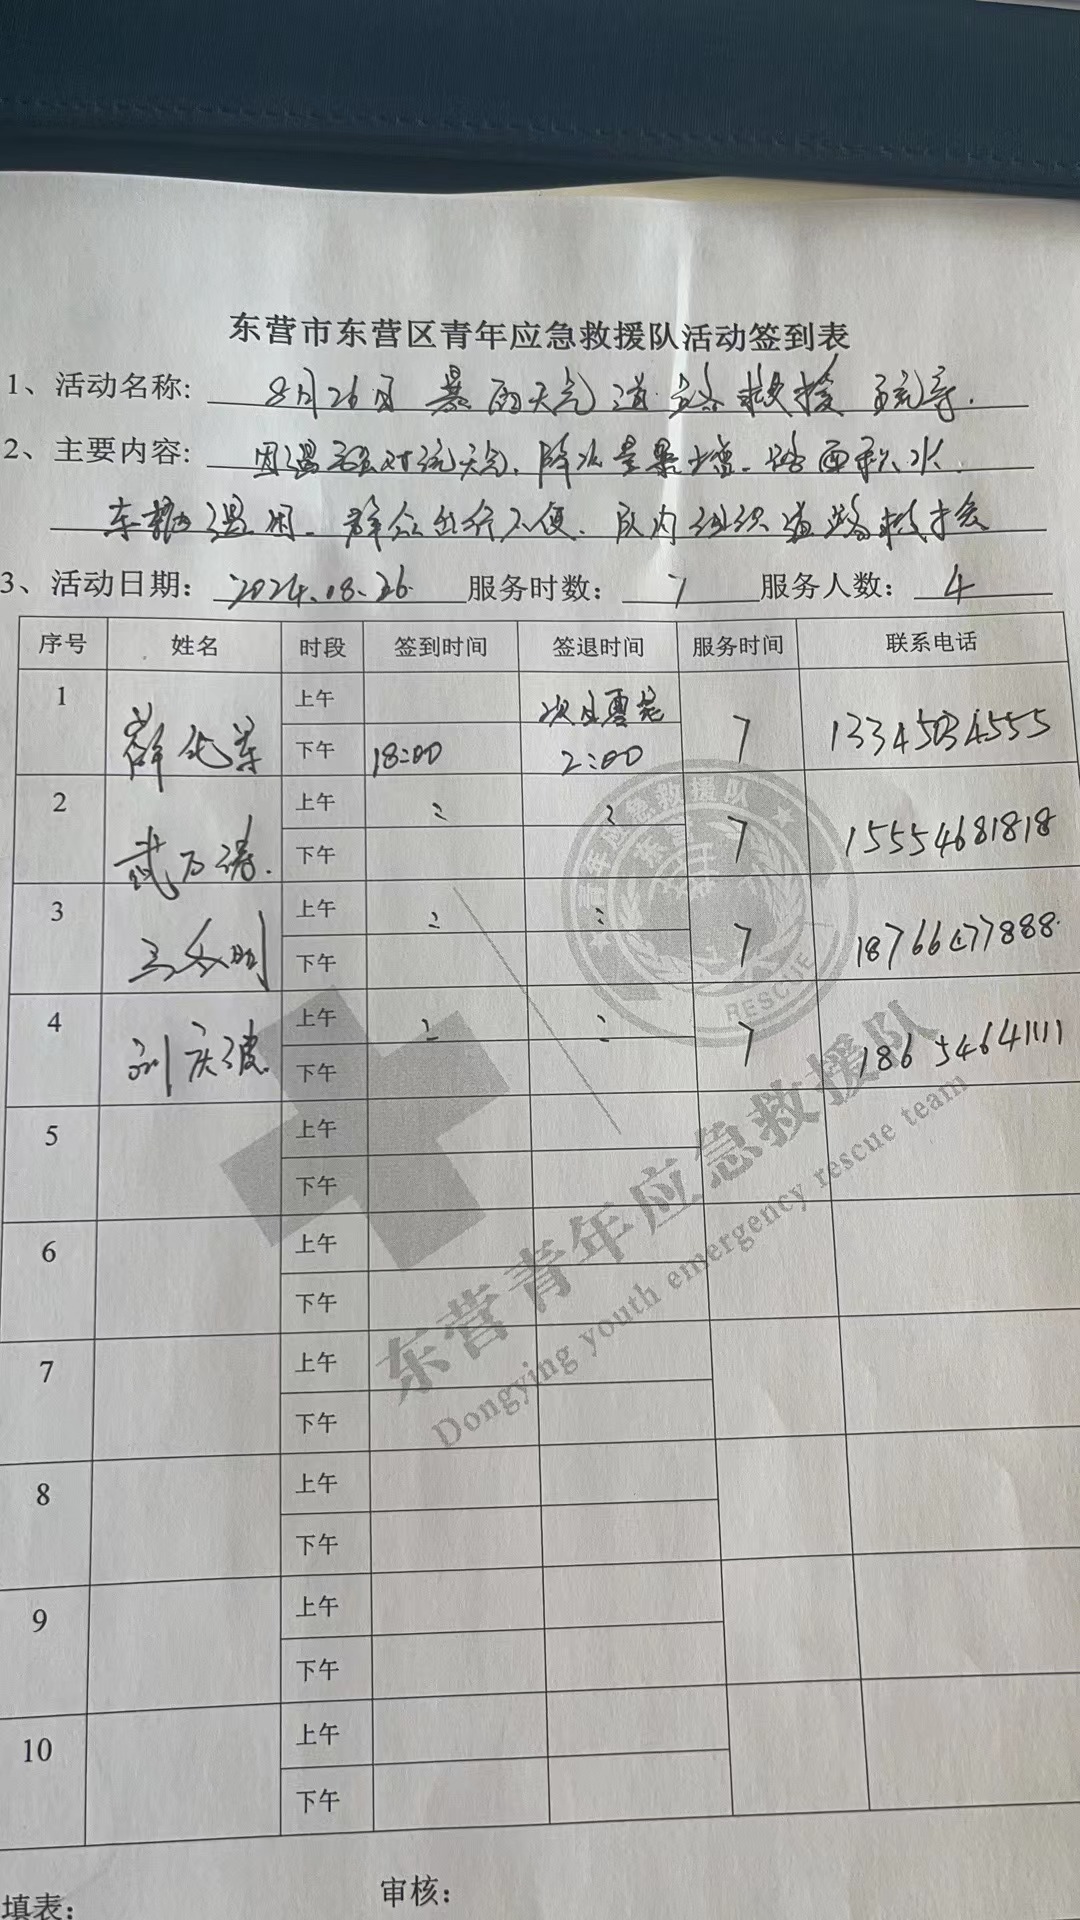 东营市东营区青年应急救援队活动签到表
1、活动名称: 8月26日 暴雨天气道路救援 疏导.
2、主要内容: 因遇强对流天气、降水量累增、路面积水.
车辆遇困、群众出行不便、队内组织道路救援
3、活动日期: 2024.08.26. 服务时数: 7 服务人数: 4
序号 姓名 时段 签到时间 签退时间 服务时间 联系电话
1 薛化 上午 次日凌晨 7
下午 18:00 2:00
2 武万涛. 上午 〃 〃 7 15554681818
下午
3 上午 〃 〃 7
下午
4 刘庆波 上午 〃 〃 7 18654641111
下午
5 上午
下午
6 上午
下午
7 上午
下午
8 上午
下午
9 上午
下午
10 上午
下午
填表: 审核:
青年应急救援队
RESCUE
东营青年应急救援队
Dongying youth emergency rescue team